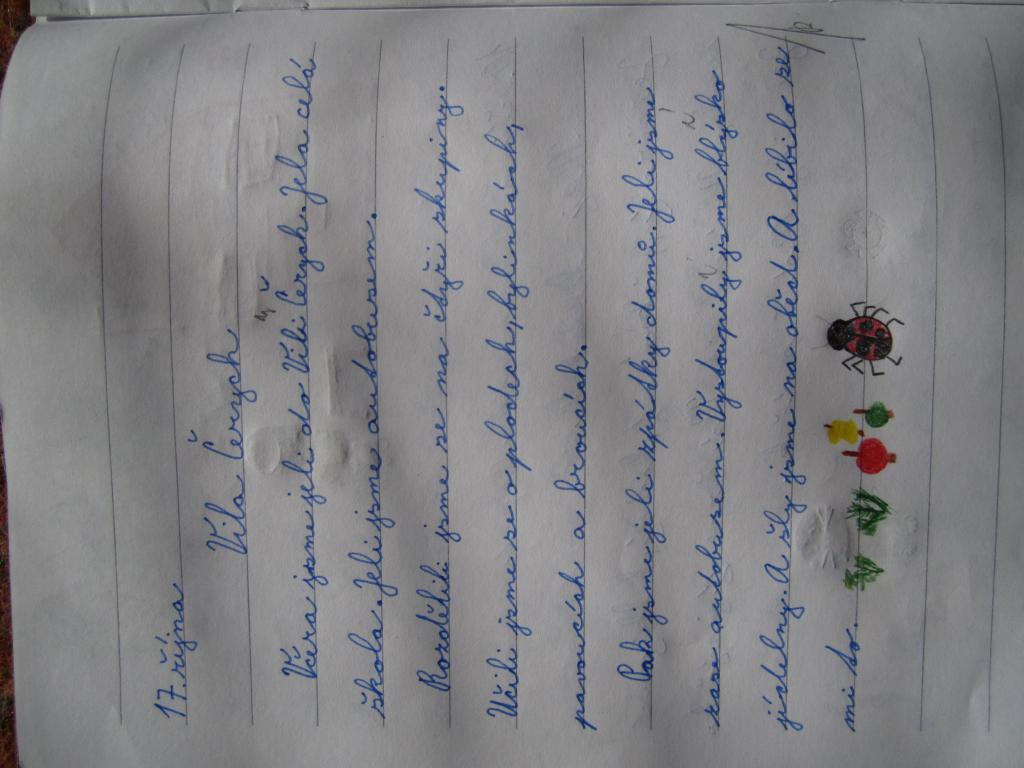 17. října
Vila Čerych
Včera jsme jeli do Vili Čerych. Jela celá
škola. Jeli jsme autobusem.
Rozdělili jsme se na čtyři skupiny.
Učili jsme se o plodech, bylinkách,
pavoucích a broucích.
Pak jsmi jeli zpátky domů. Jeli jsme
zase autobusem. Vystoupily jsme blýzko
jídelny. A šly jsme na oběd. A líbilo se
mi to.